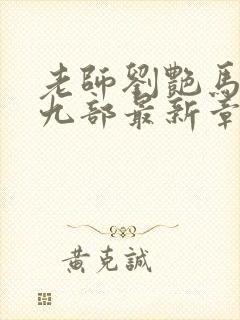 老師劉艷馬
九部最新章
黃克誠